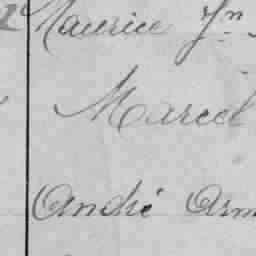 Maurice Jn
Marcel
André Arm